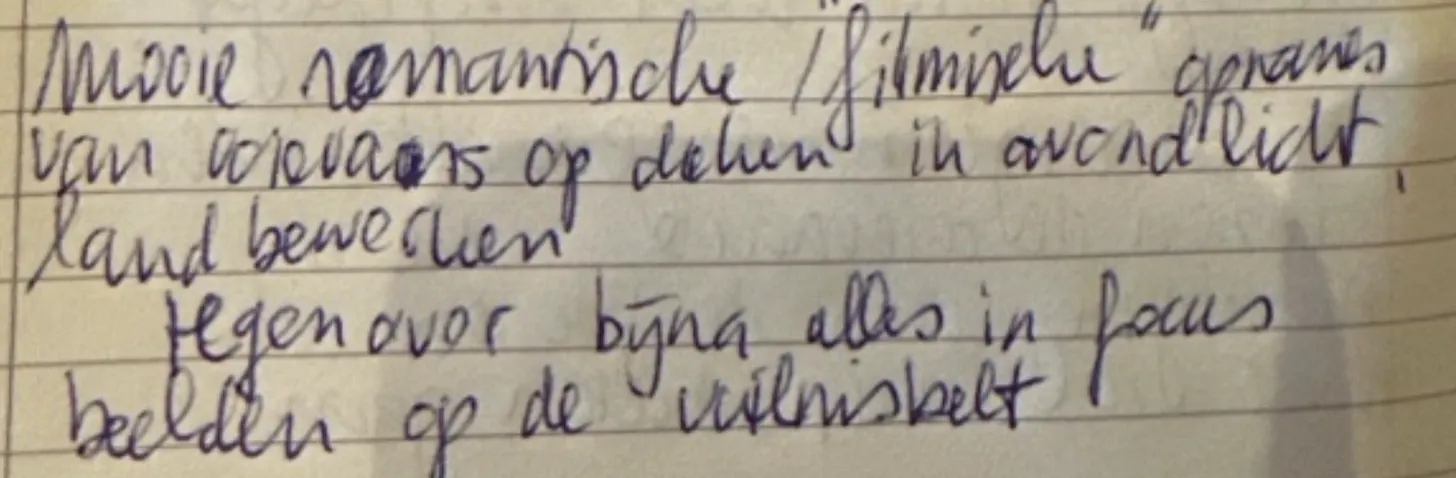 Mooie romantische / "filmische" opnames
van ooievaars op daken in avondlicht,
land bewerken
tegenover bijna alles in focus
beelden op de vuilnisbelt